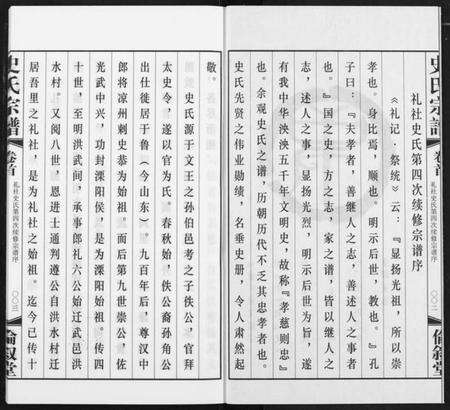 史氏宗譜
卷首
礼社史氏第四次续修宗谱序
〇〇二
倫敍堂
礼社史氏第四次续修宗谱序
《礼记·祭统》云：『显扬先祖，所以崇
孝也。身比焉，顺也。明示后世，教也。』孔
子曰：『夫孝者，善继人之志，善述人之事者
也。』国之史，方之志，家之谱，皆以继人之
志，述人之事，显扬光烈，明示后世为旨，遂
有我中华泱泱五千年文明史，故称『孝慈则忠』
也。余观史氏之谱，历朝历代不乏其忠孝者也。
史氏先贤之伟业勋绩，名垂史册，令人肃然起
敬。
史氏源于文王之孙伯邑考之子佚公，官拜
太史令，遂以官为氏。春秋始，佚公裔孙角公
出仕徙居于鲁（今山东）。九百年后，尊汉中
郎将凉州刺史恭为始祖。而后第九世崇公，佐
光武中兴，功封溧阳侯，是为溧阳始祖。传四
十世，至明洪武间，承事郎礼六公始迁武邑洪
水村。又阅八世，恩进士通判遵公自洪水村迁
居吾里之礼社，是为礼社之始祖。迄今已传十
史氏宗譜
卷首
礼社史氏第四次续修宗谱序
〇〇三
倫敍堂